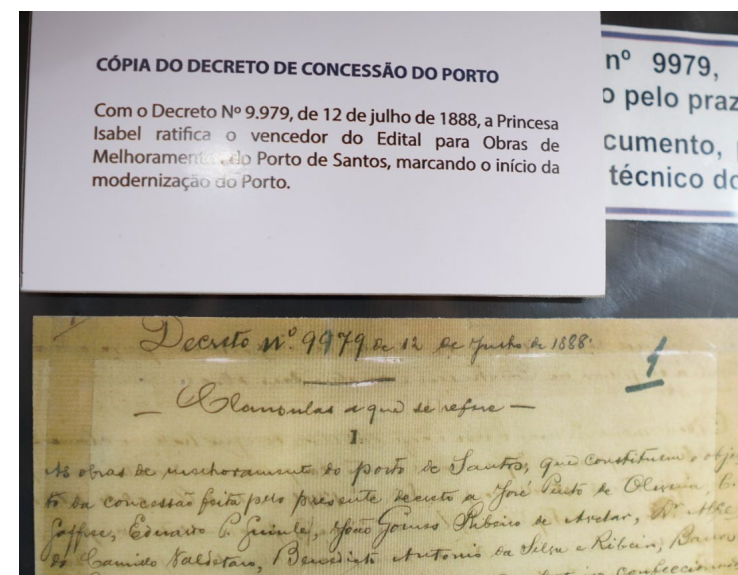 CÓPIA DO DECRETO DE CONCESSÃO DO PORTO
Com o Decreto Nº 9.979, de 12 de julho de 1888, a Princesa
Isabel ratifica o vencedor do Edital para Obras de
Melhoramento do Porto de Santos, marcando o início da
modernização do Porto.
nº 9979,
o pelo praz
cumento,
técnico do
Decreto Nº 9979 de 12 de Julho de 1888.
1
Clausulas a que se refere
I.
As obras de melhoramento do porto de Santos, que constituem o obje
to da concessão feita pelo presente decreto a José Pinto de Oliveira, C.
Gaffrée, Eduardo P. Guinle, João Gomes Ribeiro de Avelar, Dr. Alfre
do Camillo Valdetaro, Benedicto Antonio da Silva e Ribeiro,